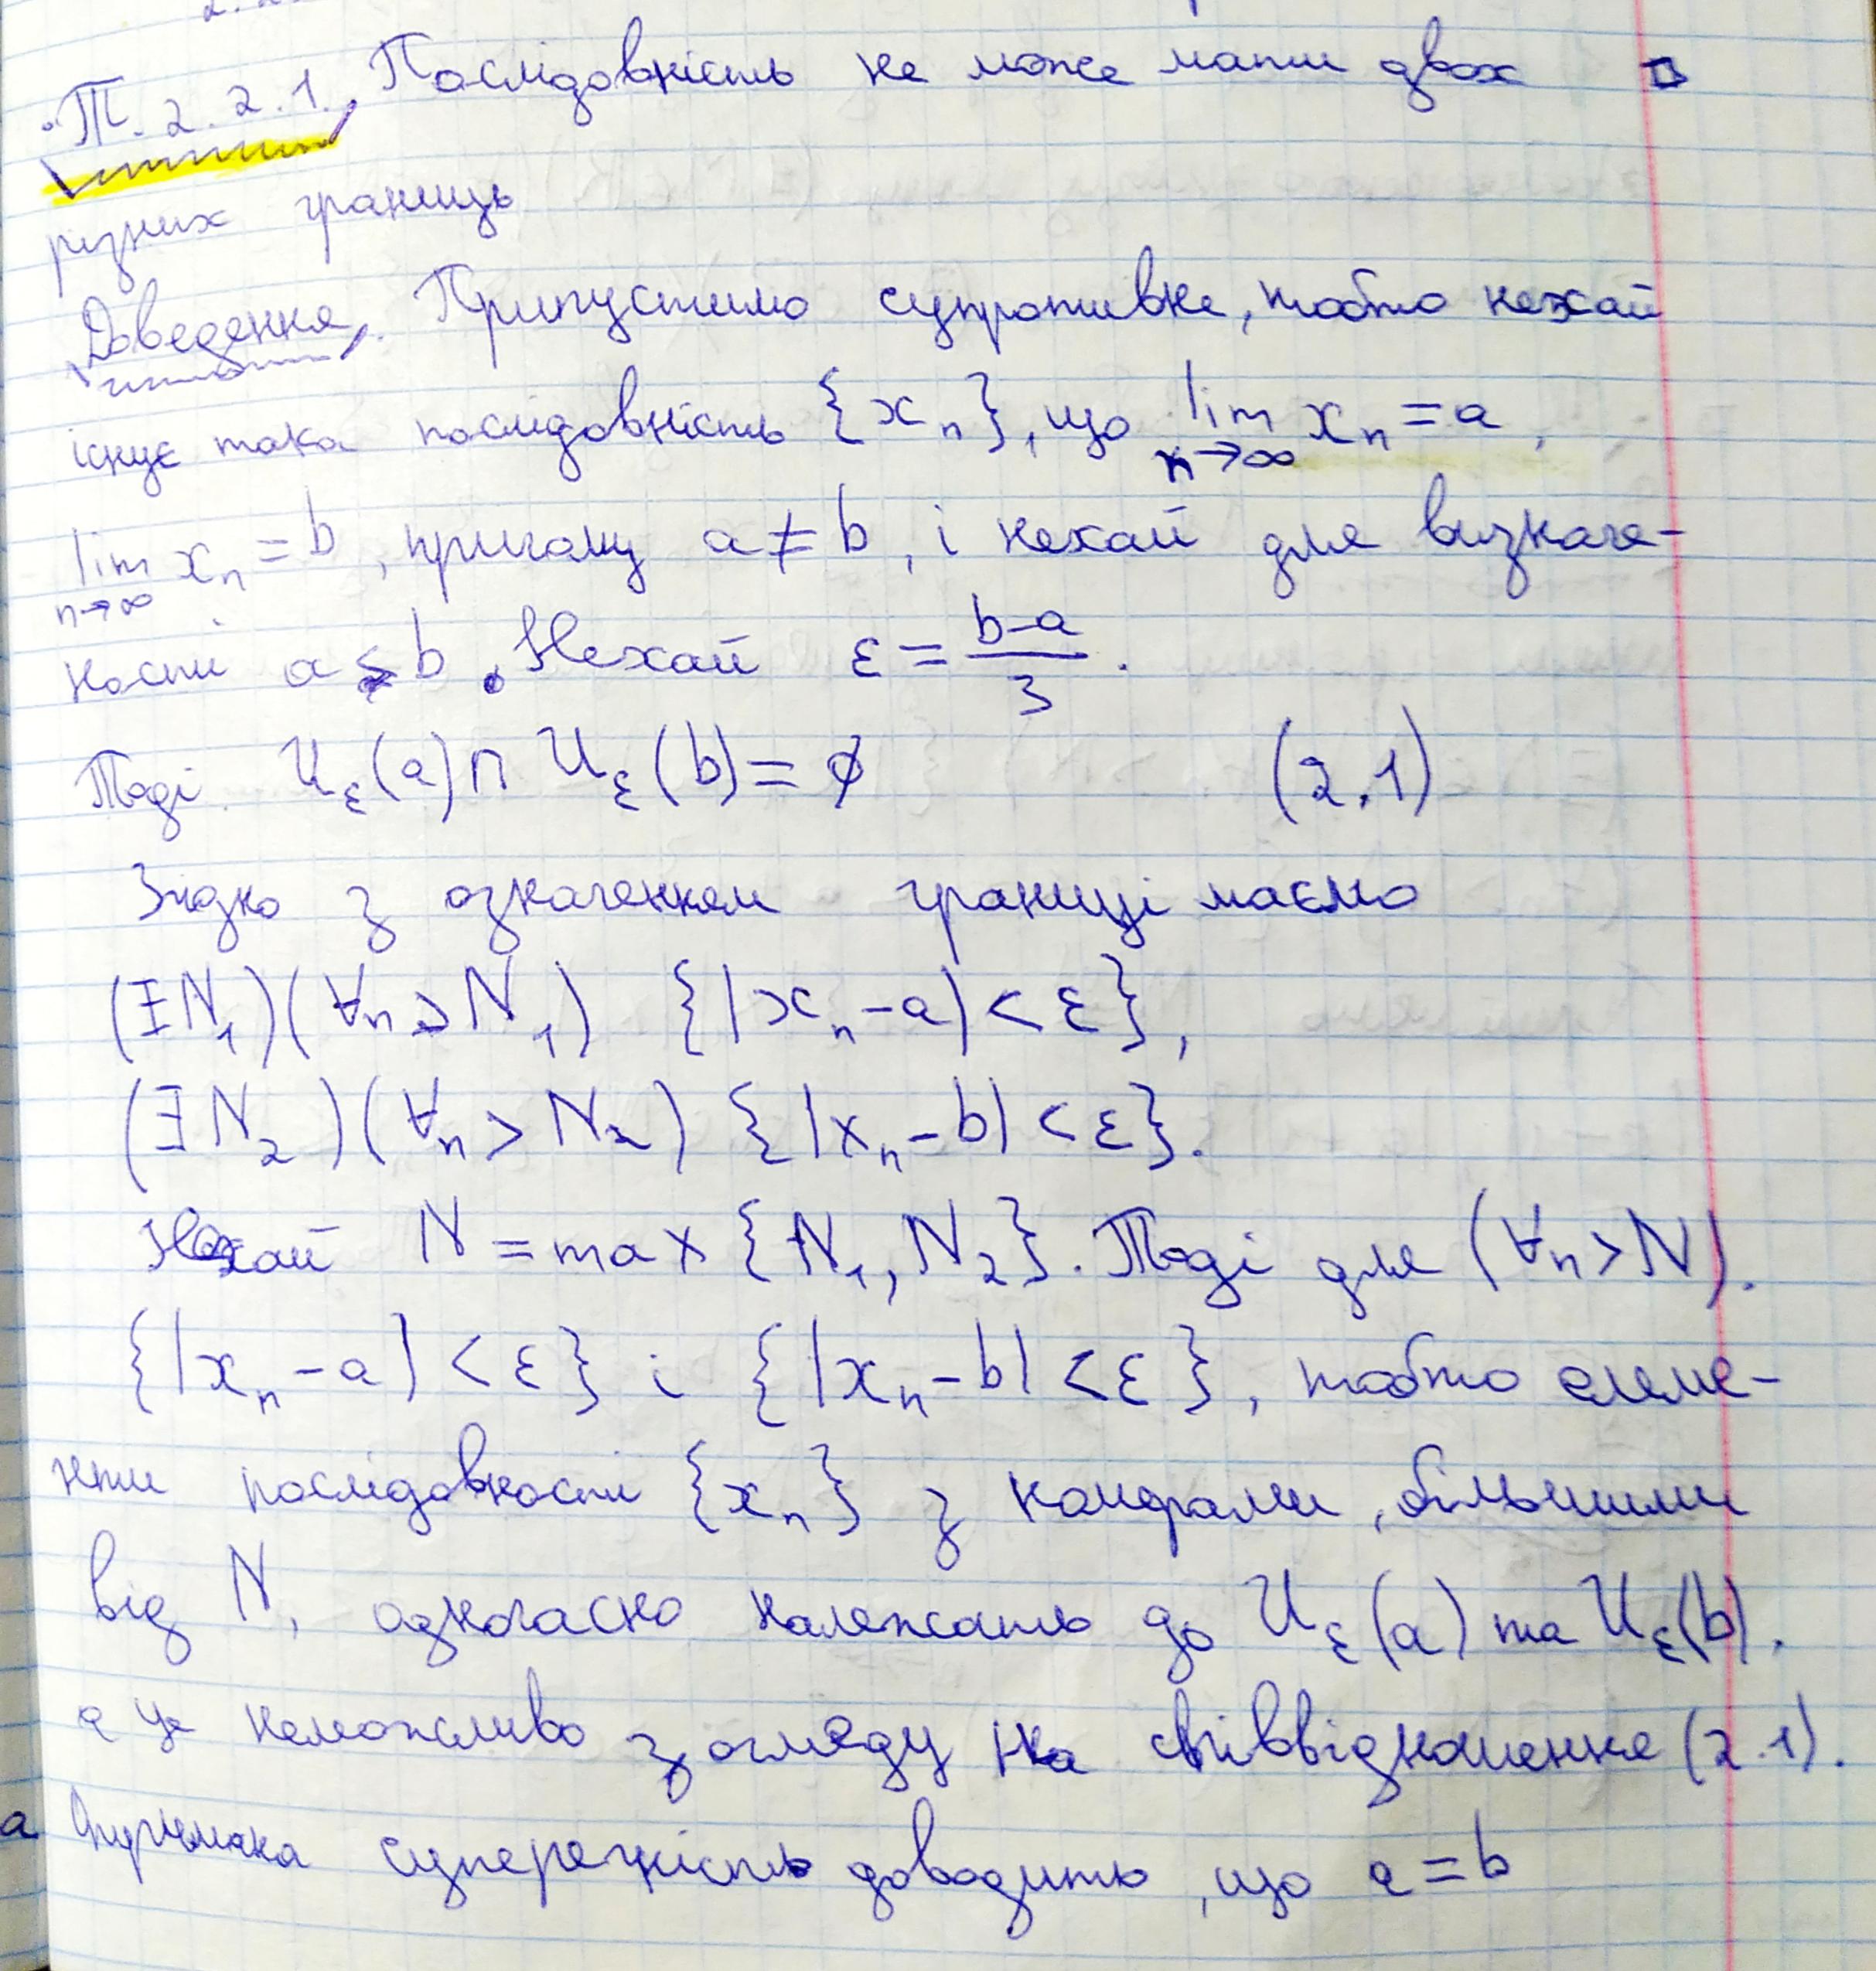 Т. 2.2.1. Послідовність не може мати двох
різних границь
Доведення. Припустимо супротивне, тобто нехай
існує така послідовність {xₙ}, що lim xₙ = a,
n→∞
lim xₙ = b, причому a ≠ b, і нехай для визначе-
n→∞
ності a < b. Нехай ε = (b-a)/3.
Тоді Uε(a) ∩ Uε(b) = ∅ (2.1)
Згідно з означенням границі маємо
(∃N₁)(∀n > N₁) {|xₙ - a| < ε},
(∃N₂)(∀n > N₂) {|xₙ - b| < ε}.
Нехай N = max {N₁, N₂}. Тоді для (∀n > N).
{|xₙ - a| < ε} і {|xₙ - b| < ε}, тобто елеме-
нти послідовності {xₙ} з номерами, більшими
від N, одночасно належать до Uε(a) та Uε(b),
а це неможливо з огляду на співвідношення (2.1).
Отримана суперечність доводить, що a = b